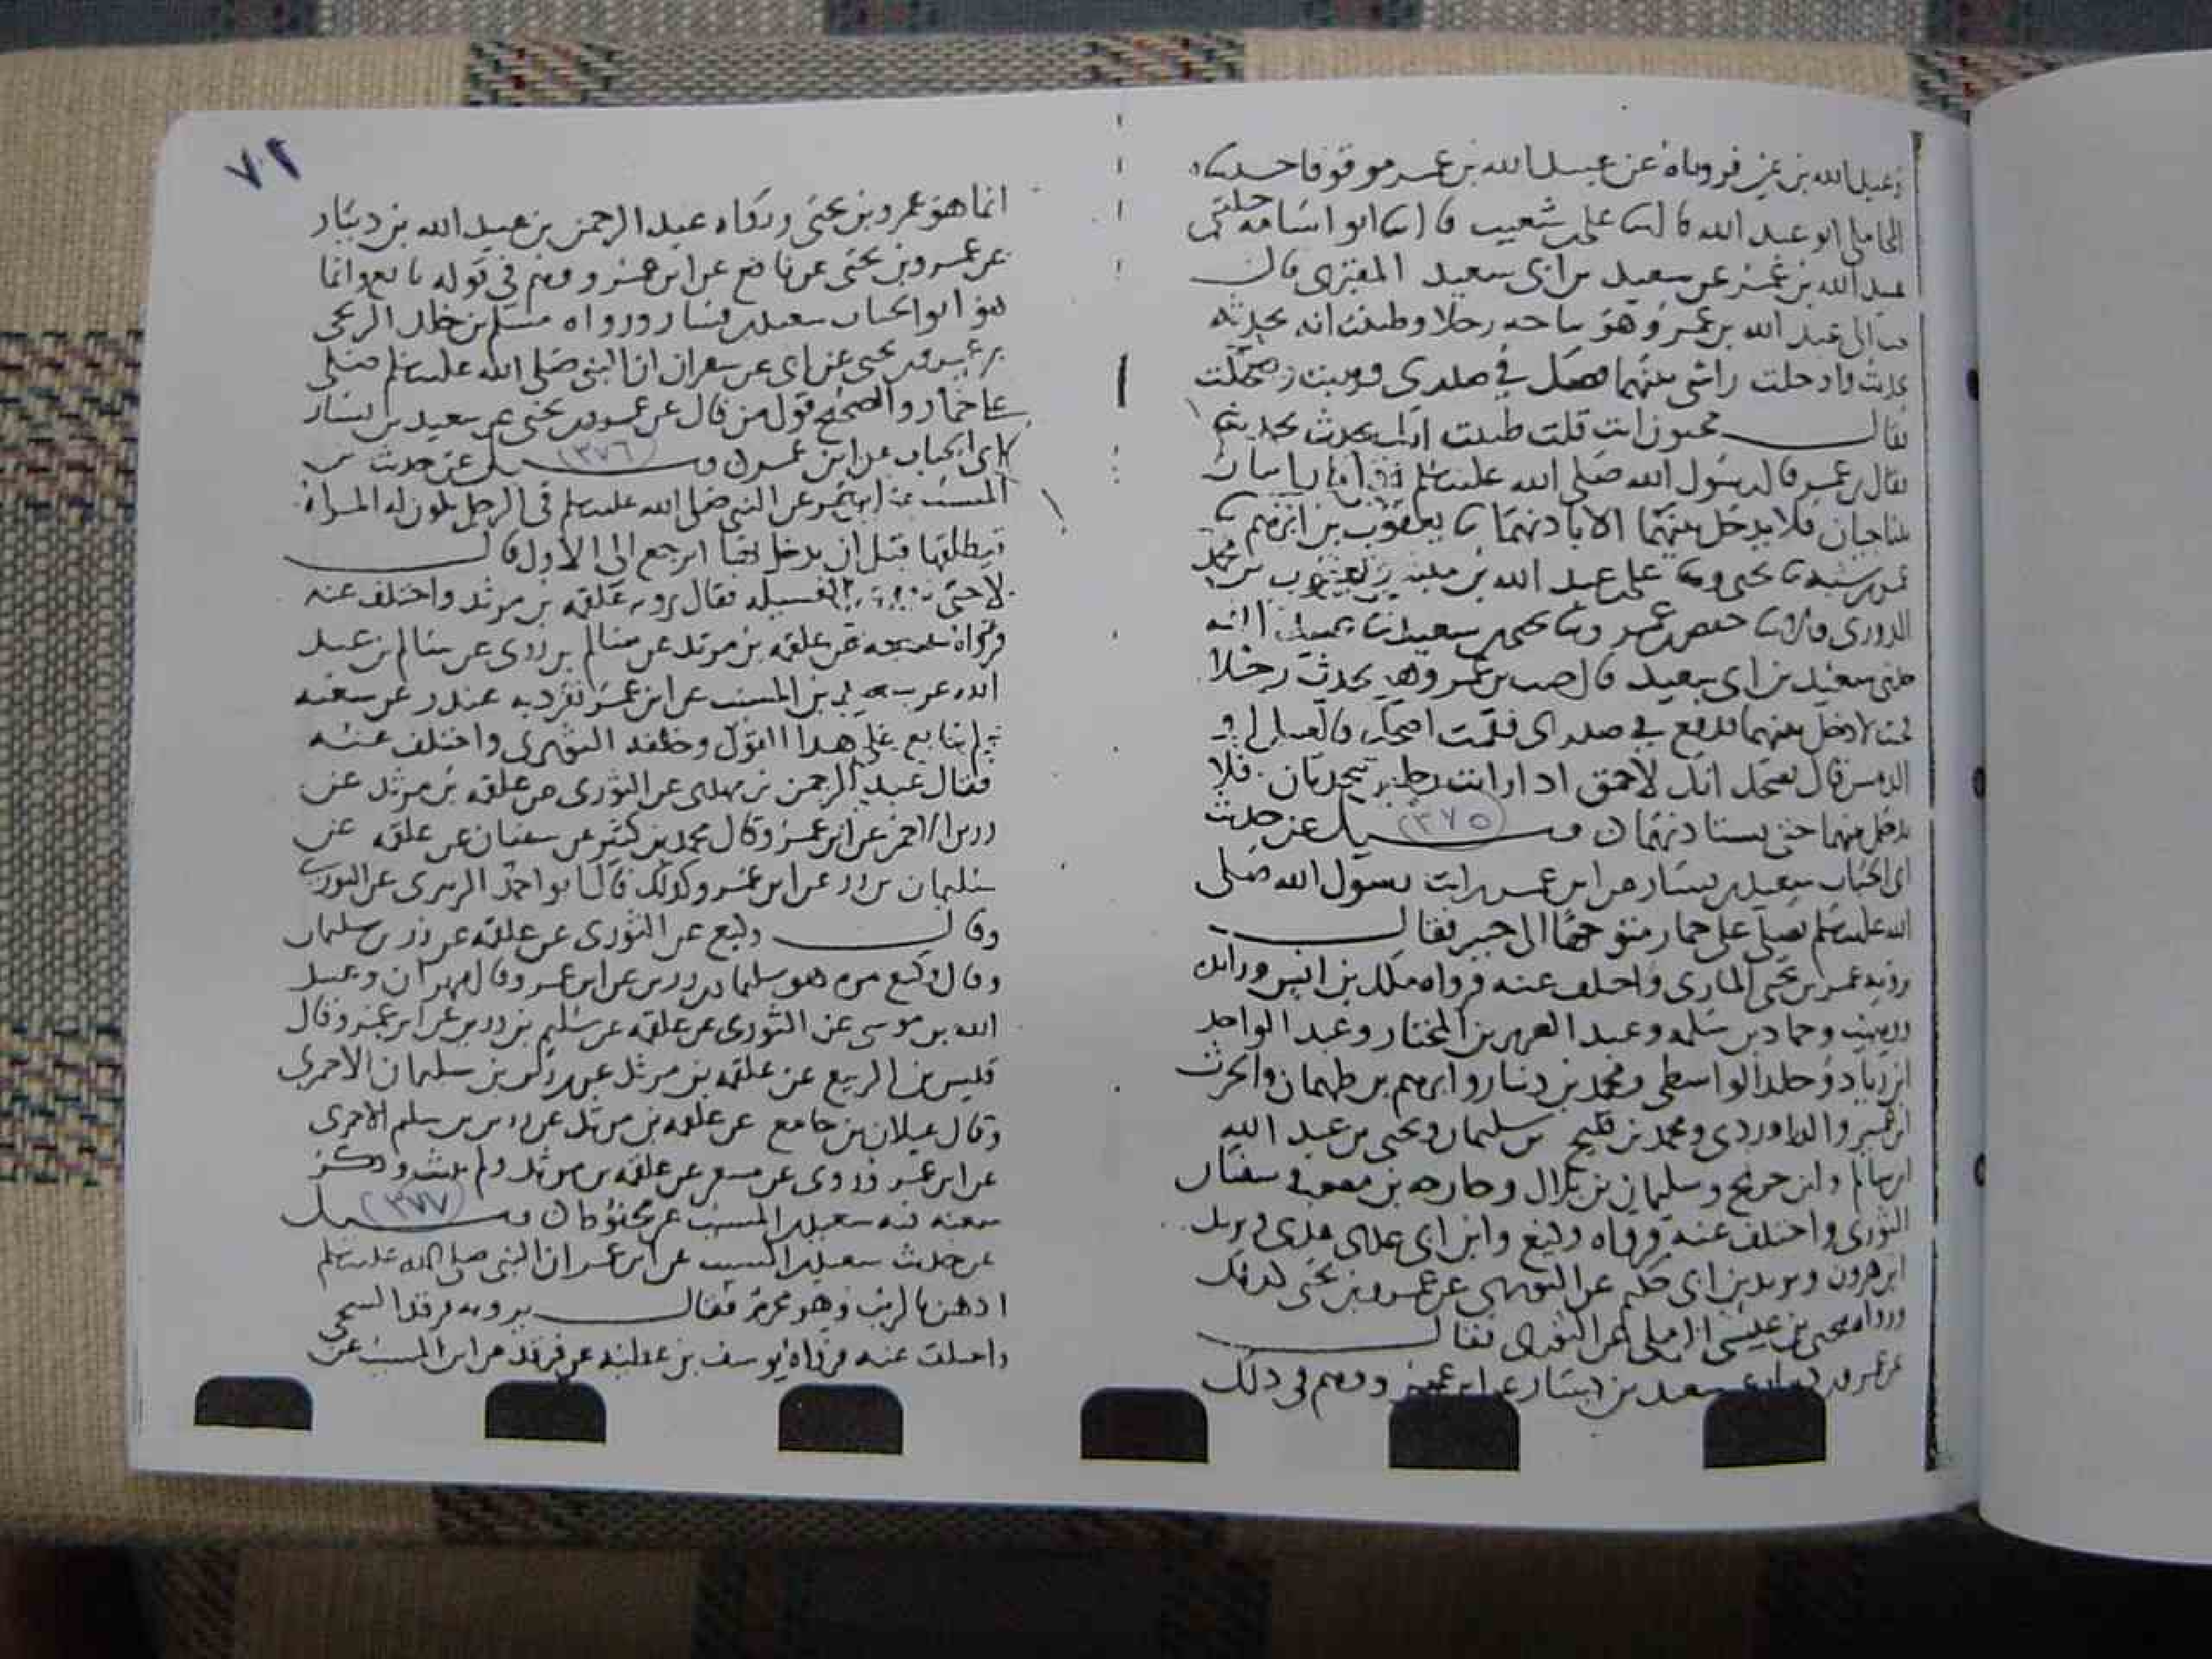 وعبد الله بن عمر فروياه عن عبد الله بن عمر موقوفا حدثنا
المحاملي ابو عبد الله قال ثنا علي بن شعيب قال ثنا ابو اسامة حدثني
عبد الله بن عمر عن سعيد بن ابي سعيد المقبري قال
الى عبد الله بن عمر وهو يناجيه رجلا وظننت انه يحدثه
وادخلت راسي بينهما فصك في صدري
فقال مجنون انت قلت ظننت انك تحدث بحديث
فقال بن عمر قال رسول الله صلى الله عليه وسلم اذا كانا اثنان
يتناجيان فلا يدخل بينهما الا باذنهما ثنا يعقوب بن ابرهيم ثنا
عمر بن شبه ثنا يحيى وثنا علي بن عبد الله بن مبشر محمد
الدوري قالا ثنا حفص بن عمر وثنا يحيى بن سعيد ثنا عبيد الله
حدثني سعيد بن ابي سعيد قال بن عمر وهو يحدث رجلا
لادخل بينهما فدفع في صدري فقمت اضحك قال
قال تضحك انك لاحمق اذا رايت رجلين يتحدثان فلا
تدخل بينهما حتى تستاذنهما (٣٧٥) وسئل عن حديث
ابي الحباب سعيد بن يسار عن ابن عمر رايت رسول الله صلى
الله عليه وسلم يصلي على حمار متوجها الى خيبر فقال
يرويه عمرو بن يحيى المازني واختلف عنه فرواه ملك بن انس وزائدة
ووهيب وحماد بن سلمه وعبد العزيز بن المختار وعبد الواحد
ابن زياد وخلد الواسطي ومحمد بن دينار وابرهيم بن طهمان والحرث
ابن عمير والدراوردي ومحمد بن فليح بن سليمان ويحيى بن عبد الله
ابن سالم وابن جريج وسليمان بن بلال وخارجه بن مصعب وسفيان
الثوري واختلف عنه فرواه وكيع وابن ابي عدي ويزيد
ابن هرون ويزيد بن ابي حكيم عن الثوري عن عمرو بن يحيى كذلك
ورواه يحيى بن عيسى الرملي عن الثوري فقال
عن عمرو بن دينار عن سعيد بن يسار عن ابن عمر ووهم في ذلك
٧٢
انما هو عمرو بن يحيى ورواه عبد الرحمن بن عبد الله بن دينار
عن عمرو بن يحيى عن نافع عن ابن عمر ووهم في قوله نافع وانما
هو ابو الحباب سعيد بن يسار ورواه مسلم بن خلد الزنجي
عن عمرو بن يحيى عن ان النبي صلى الله عليه وسلم صلى
على حمار والصحيح قول من قال عن عمرو بن يحيى عن سعيد بن يسار
ابي الحباب عن ابن عمر (٣٧٦) وسئل عن حديث بن
المسيب عن ابن عمر عن النبي صلى الله عليه وسلم في الرجل تكون له المراة
فيطلقها قبل ان يدخل بها اترجع الى الاول قال
لا حتى العسيله فقال يرويه علقمه بن مرثد واختلف عنه
فرواه شعبه عن علقمه بن مرثد عن سالم بن رزين عن سالم بن عبد
الله عن سعيد بن المسيب عن ابن عمر تفرد به غندر عن شعبه
ولم يتابع على هذا القول وخالفه الثوري واختلف عنه
فقال عبد الرحمن بن مهدي عن الثوري عن علقمه بن مرثد عن
رزين الاحمري عن ابن عمر وقال محمد بن كثير عن سفيان عن علقمه عن
سليمان بن رزين عن ابن عمر وكذلك قال ابو احمد الزبيري عن الثوري
وقال وكيع عن الثوري عن علقمه عن رزين بن سليمان
وقال وكيع مره هو سليمان بن رزين عن ابن عمر وقال مهران وعبيد
الله بن موسى عن الثوري عن علقمه عن سليم بن رزين عن ابن عمر وقال
قيس بن الربيع عن علقمه بن مرثد عن رزين بن سليمان الاحمري
وقال غيلان بن جامع عن علقمه بن مرثد عن رزين بن سليم الاحمري
عن ابن عمر وروي عن مسعر عن علقمه بن مرثد ولم يثبت وذكر
شعبه فيه سعيد بن المسيب غير محفوظ (٣٧٧) وسئل
عن حديث سعيد بن المسيب عن ابن عمر ان النبي صلى الله عليه وسلم
ادهن بالزيت وهو محرم فقال يرويه فرقد السبخي
واختلف عنه فرواه يوسف بن عطيه عن فرقد عن ابن المسيب عن